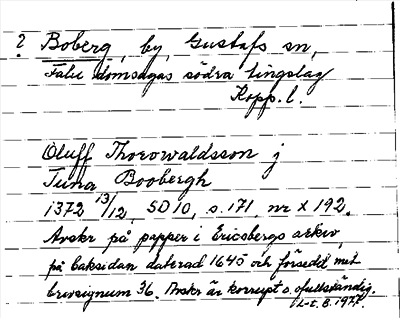 ? Boberg, by, Gustafs sn,
Falu domsagas södra tingslag
Kopp. l.
Oluff Thorowaldsson j
Tuna Boobergh
1372 13/12, SD 10, s. 171, nr X 192.
Avskr på papper i Ericsbergs arkiv,
på baksidan daterad 1645 och försedd met
brevsignum 36. Avskr är korrupt o. ofullständig.
L-t. B. 1977.